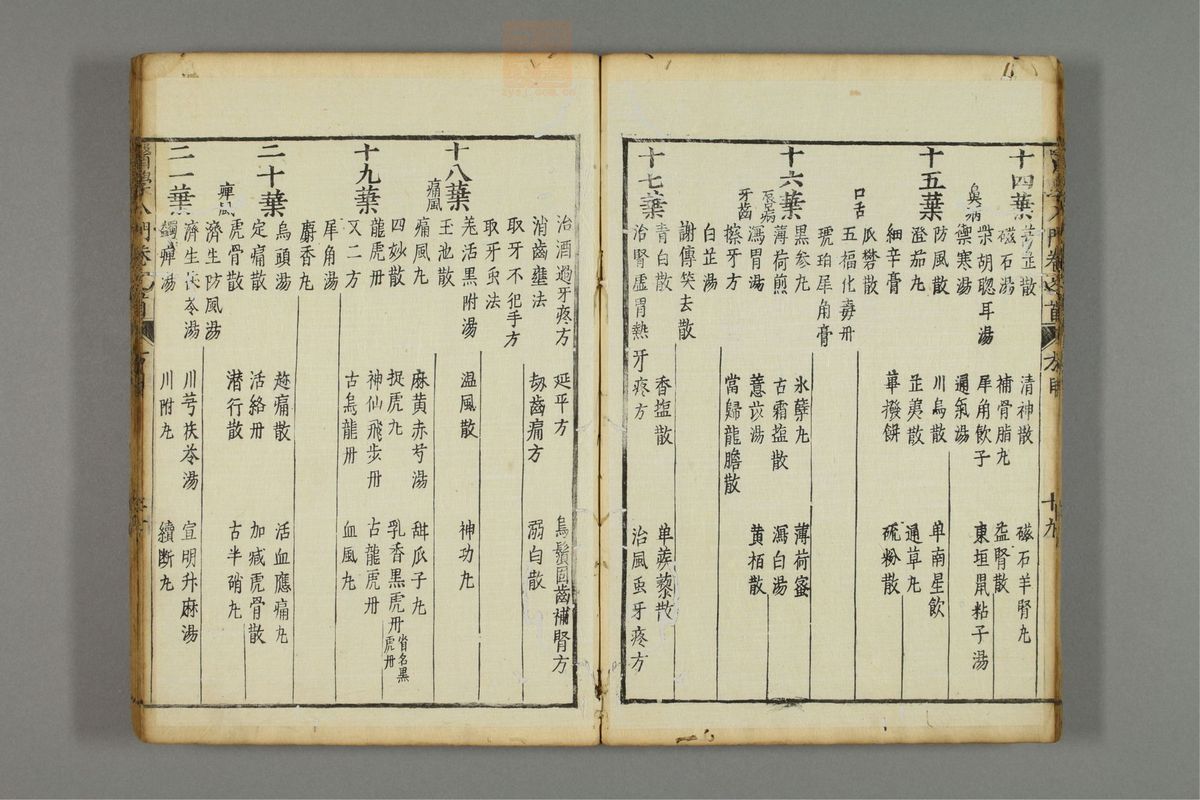 十四葉 芎芷散 清神散 磁石羊腎丸
磁石湯 補骨脂丸 益腎散
鼻病 柴胡聰耳湯 犀角飲子 東垣鼠粘子湯
禦寒湯 通氣湯
十五葉 防風散 川烏散 单南星飲
澄茄丸 芷荑散 通草丸
細辛膏 蓽撥餅 硫粉散
口舌 瓜礬散
五福化毒丹
琥珀犀角膏
十六葉 黒参丸 氷蘗丸 薄荷蜜
唇病 薄荷煎 古霜塩散 瀉白湯
瀉胃湯 薏苡湯 黄栢散
牙齒 擦牙方 當歸龍膽散
白芷湯
謝傳笑去散
十七葉 青白散 香塩散 单蒺藜散
治腎虚胃熱牙疼方 治風虫牙疼方
治酒過牙疼方 延平方 烏鬚固齒補腎方
消齒壅法 刼齒痛方 溺白散
取牙不犯手方
取牙虫法
十八葉 羗活黒附湯 温風散 神功丸
玉池散
痛風 痛風丸 麻黄赤芍湯 甜瓜子丸
四妙散 捉虎丸 乳香黒虎丹 省名黒虎丹
十九葉 龍虎丹 神仙飛步丹 古龍虎丹
又二方 古烏龍丹 血風丸
犀角湯
麝香丸
二十葉 烏頭湯 趂痛散 活血應痛丸
定痛散 活絡丹 加减虎骨散
虎骨散 潜行散 古半硝丸
痺風 濟生防風湯
二一葉 濟生茯苓湯 川芎茯苓湯 宣明升麻湯
蠲痺湯 川附丸 續断丸